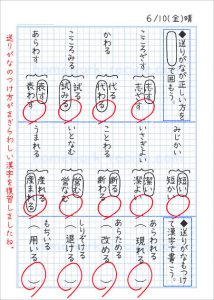 6/10(金)晴
◆送りがなが正しい方を
で囲もう。
こころざす
志す
志ざす
かわる
代る
代わる
こころみる
試る
試みる
あらわす
表わす
表す
みじかい
短い
短かい
いさぎよい
潔い
潔よい
ことわる
断る
断わる
いとなむ
営む
営なむ
うまれる
産れる
産まれる
◆送りがなもつけ
て漢字で書こう。
あらわれる
（現れる）
あらためる
（改める）
しりぞける
（退ける）
もちいる
（用いる）
送りがなのつけ方がまぎらわしい漢字を復習しましたね。